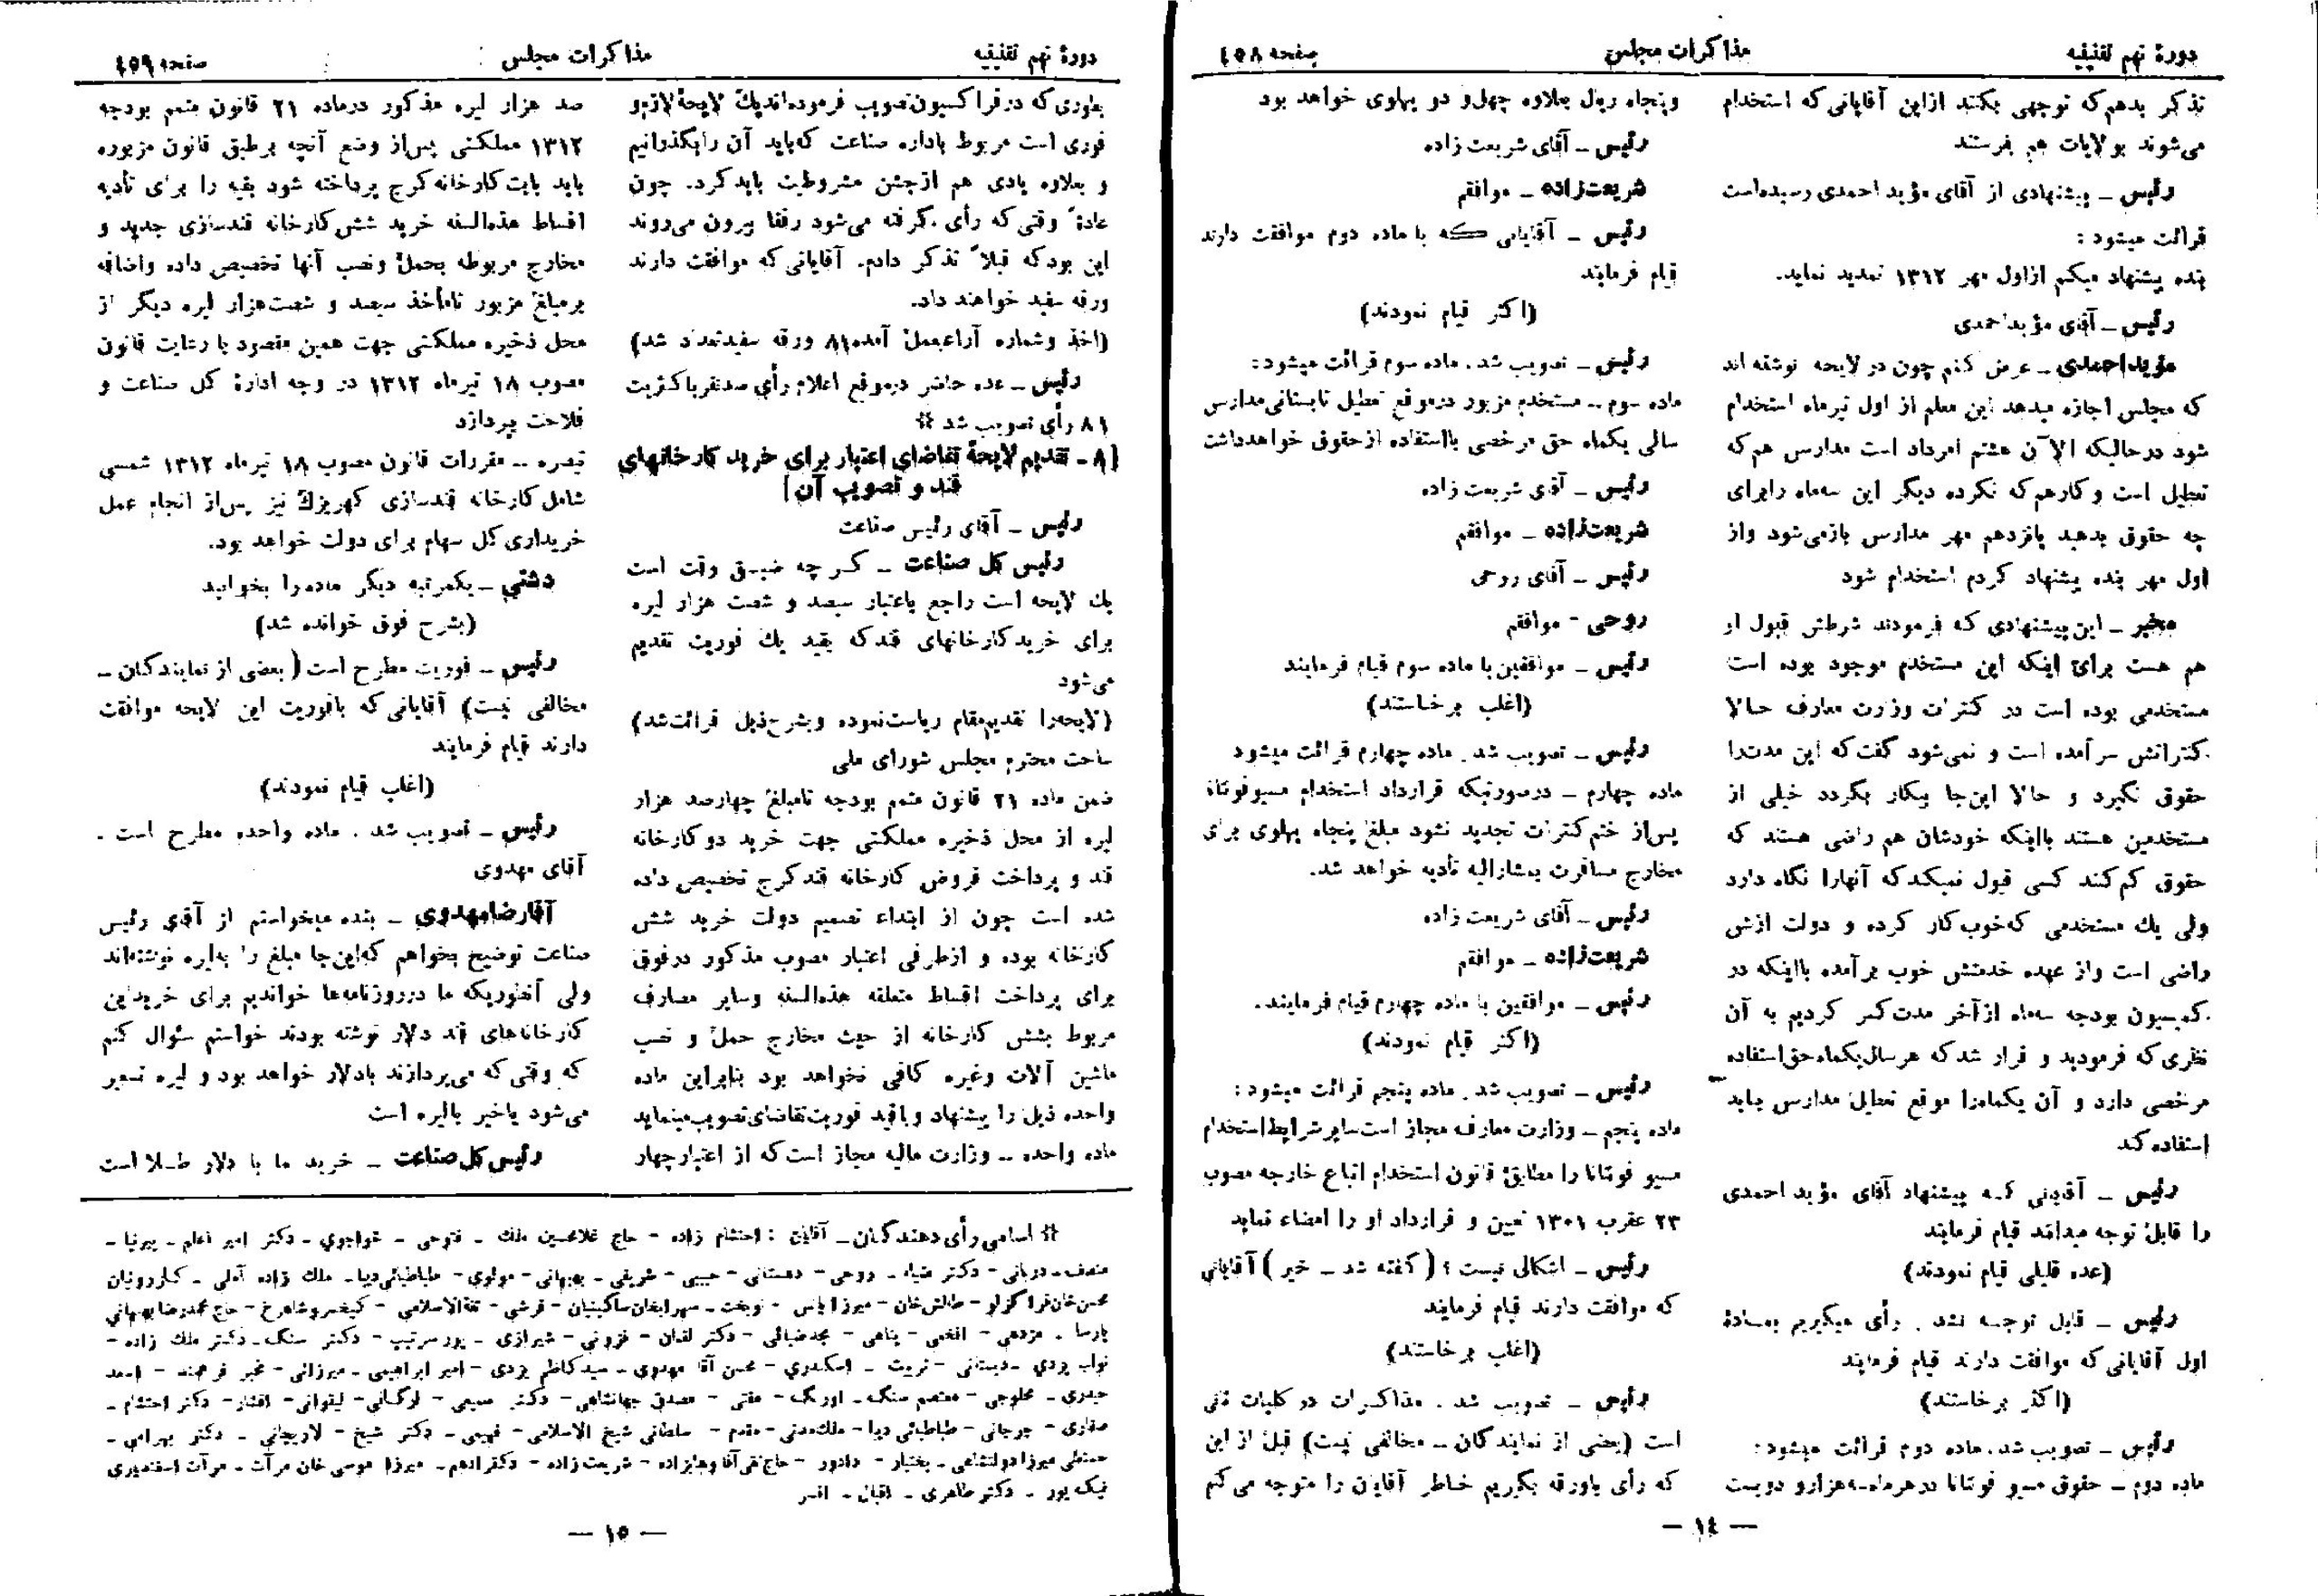 دورهٔ نهم تقنینیه
مذاکرات مجلس
صفحه ٤٥٨
تذکر بدهم که توجهی بکنند ازاین آقایانی که استخدام
می‌شوند بولایات هم بفرستند
رئیس ـ پیشنهادی از آقای مؤید احمدی رسیده‌است
قرائت میشود :
بنده پیشنهاد میکنم ازاول مهر ۱۳۱۲ تمدید نماید.
رئیس ـ آقای مؤیداحمدی
مؤیداحمدی ـ عرض کنم چون در لایحه نوشته اند
که مجلس اجازه میدهد این معلم از اول تیرماه استخدام
شود درحالیکه الآن هشتم امرداد است مدارس هم که
تعطیل است و کارهم که نکرده دیگر این سه‌ماه رابرای
چه حقوق بدهید پانزدهم مهر مدارس بازمی‌شود واز
اول مهر بنده پیشنهاد کردم استخدام شود
مخبر ـ این پیشنهادی که فرمودند شرطش قبول او
هم هست برای اینکه این مستخدم موجود بوده است
مستخدمی بوده است در کنترات وزارت معارف حالا
کنتراتش سرآمده است و نمی‌شود گفت که این مدت‌را
حقوق نگیرد و حالا این‌جا بیکار بگردد خیلی از
مستخدمین هستند بااینکه خودشان هم راضی هستند که
حقوق کم کنند کسی قبول نمیکند که آنهارا نگاه دارد
ولی یك مستخدمی که‌خوب‌کار کرده و دولت ازش
راضی است واز عهده خدمتش خوب برآمده بااینکه در
کمیسیون بودجه سه‌ماه ازآخر مدت‌کسر کردیم به آن
نظری که فرمودید و قرار شد که هرسال‌یکماه‌حق‌استفاده
مرخصی دارد و آن یکماه‌را موقع تعطیل مدارس باید
استفاده کند
رئیس ـ آقایانی که پیشنهاد آقای مؤید احمدی
را قابل توجه میدانند قیام فرمایند
(عده قلیلی قیام نمودند)
رئیس ـ قابل توجه نشد . رأی میگیریم بمادهٔ
اول آقایانی که موافقت دارند قیام فرمایند
(اکثر برخاستند)
رئیس ـ تصویب شد. ماده دوم قرائت میشود:
ماده دوم ـ حقوق مسیو فونتانا درهرماه‌سه‌هزارو دویست
وپنجاه ریال بعلاوه چهل‌و دو پهلوی خواهد بود
رئیس ـ آقای شریعت زاده
شریعت‌زاده ـ موافقم
رئیس ـ آقایانی که با ماده دوم موافقت دارند
قیام فرمایند
(اکثر قیام نمودند)
رئیس ـ تصویب شد. ماده سوم قرائت میشود:
ماده سوم ـ مستخدم مزبور درموقع تعطیل تابستانی‌مدارس
سالی یکماه حق مرخصی بااستفاده ازحقوق خواهدداشت
رئیس ـ آقای شریعت زاده
شریعت‌زاده ـ موافقم
رئیس ـ آقای روحی
روحی - موافقم
رئیس ـ موافقین با ماده سوم قیام فرمایند
(اغلب برخاستند)
رئیس ـ تصویب شد. ماده چهارم قرائت میشود
ماده چهارم ـ درصورتیکه قرارداد استخدام مسیوفونتانا
پس‌از ختم کنترات تجدید نشود مبلغ پنجاه پهلوی برای
مخارج مسافرت بمشارالیه تأدیه خواهد شد.
رئیس ـ آقای شریعت زاده
شریعت‌زاده ـ موافقم
رئیس ـ موافقین با ماده چهارم قیام فرمایند.
(اکثر قیام نمودند)
رئیس ـ تصویب شد. ماده پنجم قرائت میشود:
ماده پنجم ـ وزارت معارف مجاز است‌سایرشرایط‌استخدام
مسیو فونتانا را مطابق قانون استخدام اتباع خارجه مصوب
۲۳ عقرب ۱۳۰۱ تعیین و قرارداد او را امضاء نماید
رئیس ـ اشکالی نیست؟ (گفته شد ـ خیر) آقایانی
که موافقت دارند قیام فرمایند
(اغلب برخاستند)
رئیس ـ تصویب شد . مذاکرات در کلیات ثانی
است (بعضی از نمایندگان ـ مخالفی نیست) قبل از این
که رأی باورقه بگیریم خاطر آقایان را متوجه می‌کنم
— ١٤ —
دورهٔ نهم تقنینیه
مذاکرات مجلس
صفحه ٤٥٩
بطوری که درفراکسیون‌تصویب فرموده‌اندیك لایحهٔ‌لازم‌و
فوری است مربوط باداره صناعت که‌باید آن رابگذرانیم
و بعلاوه یادی هم ازجشن مشروطیت بایدکرد. چون
عادةً وقتی که رأی گرفته می‌شود رفقا بیرون می‌روند
این بودکه قبلاً تذکر دادم. آقایانی که موافقت دارند
ورقه سفید خواهند داد.
(اخذ وشماره آراءبعمل آمده۸۱ ورقه سفیدتعداد شد)
رئیس ـ عده حاضر درموقع اعلام رأی صدنفرباکثریت
۸۱ رأی تصویب شد #
[۸ ـ تقدیم لایحهٔ تقاضای اعتبار برای خرید کارخانهای
قند و تصویب آن]
رئیس ـ آقای رئیس صناعت
رئیس کل صناعت ـ گرچه ضیق وقت است
یك لایحه است راجع باعتبار سیصد و شصت هزار لیره
برای خرید کارخانهای قندکه بقید یك فوریت تقدیم
می‌شود
(لایحه‌را تقدیم‌مقام ریاست‌نموده وبشرح‌ذیل قرائت‌شد)
ساحت محترم مجلس شورای ملی
ضمن ماده ۲۱ قانون متمم بودجه تامبلغ چهارصد هزار
لیره از محل ذخیره مملکتی جهت خرید دو کارخانه
قند و پرداخت قروض کارخانه قند کرج تخصیص داده
شده است چون از ابتداء تصمیم دولت خرید شش
کارخانه بوده و ازطرفی اعتبار مصوب مذکور درفوق
برای پرداخت اقساط متعلقه هذه‌السنه وسایر مصارف
مربوط بشش کارخانه از حیث مخارج حمل و نصب
ماشین آلات وغیره کافی نخواهد بود بنابراین ماده
واحده ذیل را پیشنهاد وباقید فوریت‌تقاضای‌تصویب‌مینماید
ماده واحده ـ وزارت مالیه مجاز است‌که از اعتبارچهار
صد هزار لیره مذکور درماده ۲۱ قانون متمم بودجه
۱۳۱۲ مملکتی پس‌از وضع آنچه برطبق قانون مزبوره
باید بابت‌کارخانه‌کرج پرداخته شود بقیه را برای تأدیه
اقساط هذه‌السنه خرید شش‌کارخانه قندسازی جدید و
مخارج مربوطه بحمل ونصب آنها تخصیص داده واضافه
برمبلغ مزبور تامأخذ سیصد و شصت‌هزار لیره دیگر از
محل ذخیره مملکتی جهت همین مقصود با رعایت قانون
مصوب ۱۸ تیرماه ۱۳۱۲ در وجه ادارهٔ کل صناعت و
فلاحت بپردازد
تبصره ـ مقررات قانون مصوب ۱۸ تیرماه ۱۳۱۲ شمسی
شامل‌کارخانه قندسازی کهریزك نیز پس‌از انجام عمل
خریداری‌کل سهام برای دولت خواهد بود.
دشتی ـ یکمرتبه دیگر ماده‌را بخوانید
(بشرح فوق خوانده شد)
رئیس ـ فوریت مطرح است (بعضی از نمایندگان ـ
مخالفی نیست) آقایانی‌که بافوریت این لایحه موافقت
دارند قیام فرمایند
(اغلب قیام نمودند)
رئیس ـ تصویب شد . ماده واحده مطرح است .
آقای مهدوی
آقارضامهدوی ـ بنده میخواستم از آقای رئیس
صناعت توضیح بخواهم که‌این‌جا مبلغ را به‌لیره نوشته‌اند
ولی آنطوریکه ما درروزنامه‌ها خواندیم برای خریداین
کارخانه‌های قند دلار نوشته بودند خواستم سئوال کنم
که وقتی‌که می‌پردازند بادلار خواهد بود و لیره تسعیر
می‌شود یاخیر بالیره است
رئیس‌کل‌صناعت ـ خرید ما با دلار طلا است
# اسامی رأی دهندگان ـ آقایان : احتشام زاده - حاج غلامحسین ملك ـ فتوحی ـ خواجوی ـ دکتر امیر اعلم ـ بیرنیا ـ
منصف ـ دربانی ـ دکتر ضیاء ـ روحی - دهستانی - حبیبی - شریفی ـ بهبهانی - مولوی - طباطبائی‌دیبا ـ ملك زاده آملی ـ کازرونیان
محسن‌خان‌قراگزلو - طالش‌خان - میرزا یانس - نوبخت ـ سهراب‌خان‌ساگینیان - قرشی - ثقةالاسلامی - کیخسروشاهرخ - حاج محمدرضابهبهانی
پارسا ـ مژدهی - افخمی - پناهی - مجدضیائی - دکتر لقمان - قزونی - شیرازی ـ پورسرتیپ - دکتر سنگ ـ دکتر ملك زاده -
نواب یزدی ـ دبستانی - تربیت ـ اسکندری - محسن آقا مهدوی ـ سیدکاظم یزدی - امیر ابراهیمی ـ میرزائی - مخبر فرهمند - اسعد
حیدری ـ مخلوجی - معتصم سنگ ـ اورنگ - مفتی - مصدق جهانشاهی - دکتر سمیعی - لرگانی - لیقوانی - افشار - دکتر احتشام ـ
صفاری - جرجانی - طباطبائی دیبا - ملك‌مدنی - مقدم - سلطانی شیخ الاسلامی - فهیمی ـ دکتر شیخ - لاریجانی ـ دکتر بهرامی ـ
میرزا دولتشاهی ـ بختیار - دادور - حاج‌تقی‌آقا وهابزاده - شریعت‌زاده - دکترادهم ـ میرزا موسی خان مرآت ـ مرآت اسفندیاری
نیک پور ـ دکتر طاهری ـ اقبال ـ افسر
— ١٥ —